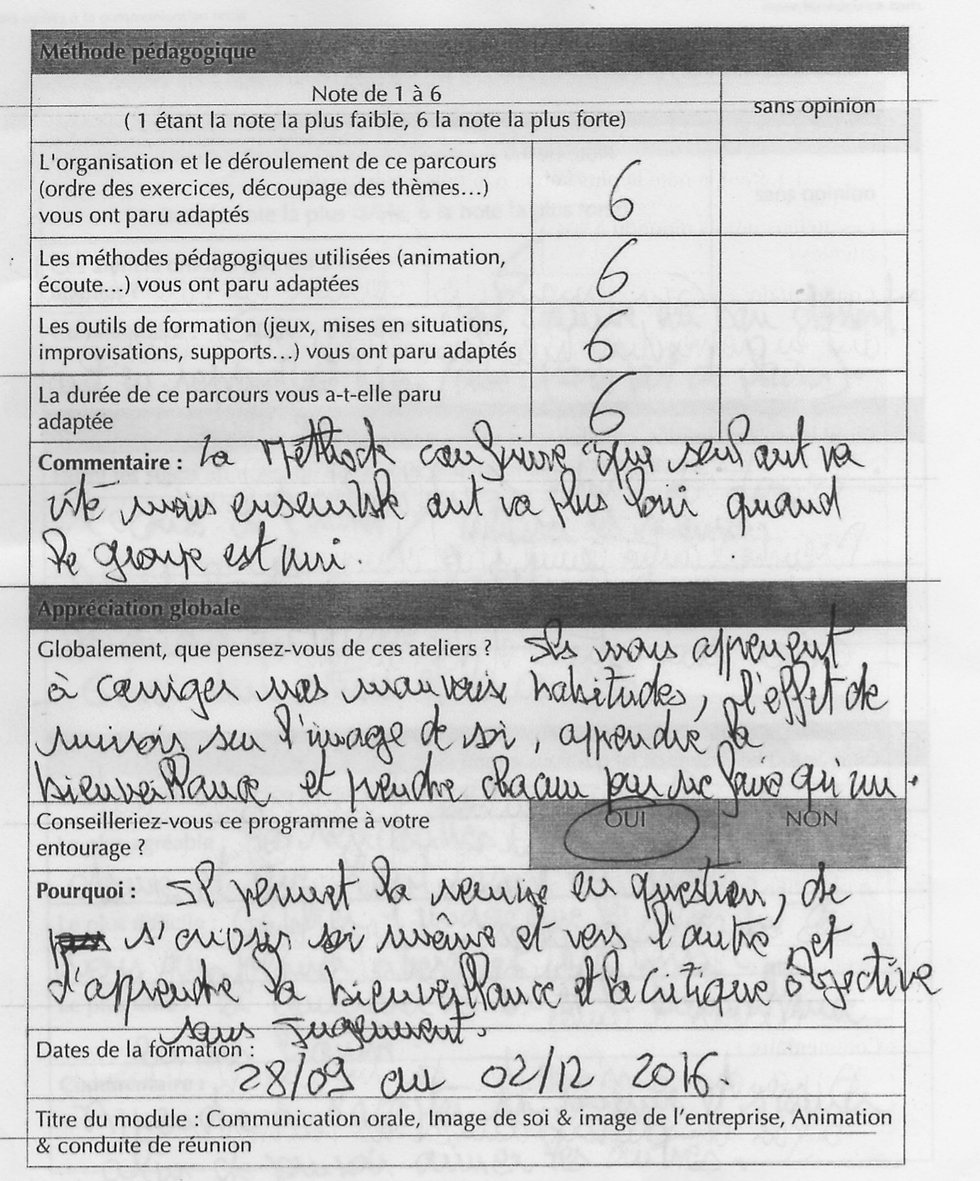 Méthode pédagogique
Note de 1 à 6
( 1 étant la note la plus faible, 6 la note la plus forte)
sans opinion
L'organisation et le déroulement de ce parcours
(ordre des exercices, découpage des thèmes...)
vous ont paru adaptés
6
Les méthodes pédagogiques utilisées (animation,
écoute...) vous ont paru adaptées
6
Les outils de formation (jeux, mises en situations,
improvisations, supports...) vous ont paru adaptés
6
La durée de ce parcours vous a-t-elle paru
adaptée
6
Commentaire : La Méthode confirme que seul ont va
vite mais ensemble ont va plus loin quand
le groupe est uni.
Appréciation globale
Globalement, que pensez-vous de ces ateliers ? Ils nous apprenent
à corriger nos mauvaise habitudes, l'effet de
miroir sur l'image de soi, apprendre la
bienveillance et prendre chacun pour ne faire qu'un.
Conseilleriez-vous ce programme à votre
entourage ?
OUI
NON
Pourquoi : Il permet la remise en question, de
s'ouvrir soi même et vers l'autre et
d'apprendre la bienveillance et la critique objective
sans jugement.
Dates de la formation :
28/09 au 02/12 2016.
Titre du module : Communication orale, Image de soi & image de l'entreprise, Animation
& conduite de réunion